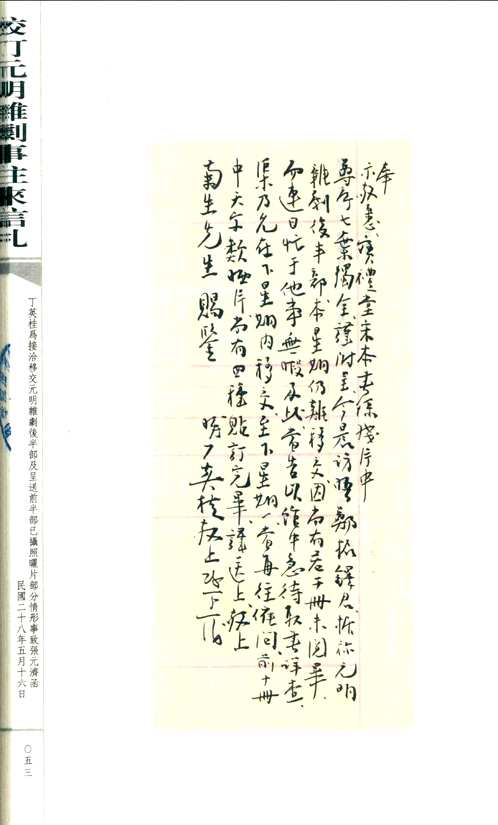 奉
示敬悉寶禮堂宋本書錄殘片中
尊處七葉獨全謹附呈今晨訪晤鄭振鐸君據称元明
雜劇後半部本星期仍難移交因尚有若干冊未閱畢
而連日忙于他事無暇及此當告以館中急待取書詳查
渠乃允在下星期內移交至下星期一當再往催問前十冊
中大字類晒片尚有四種貼訂完畢謹送上敬上
菊生先生 賜鑒
丁英桂敬上
校訂元明雜劇事往來信札
丁英桂為接洽移交元明雜劇後半部及呈送前半部已攝照曬片部分情形事致張元濟函
民國二十八年五月十六日
〇五三